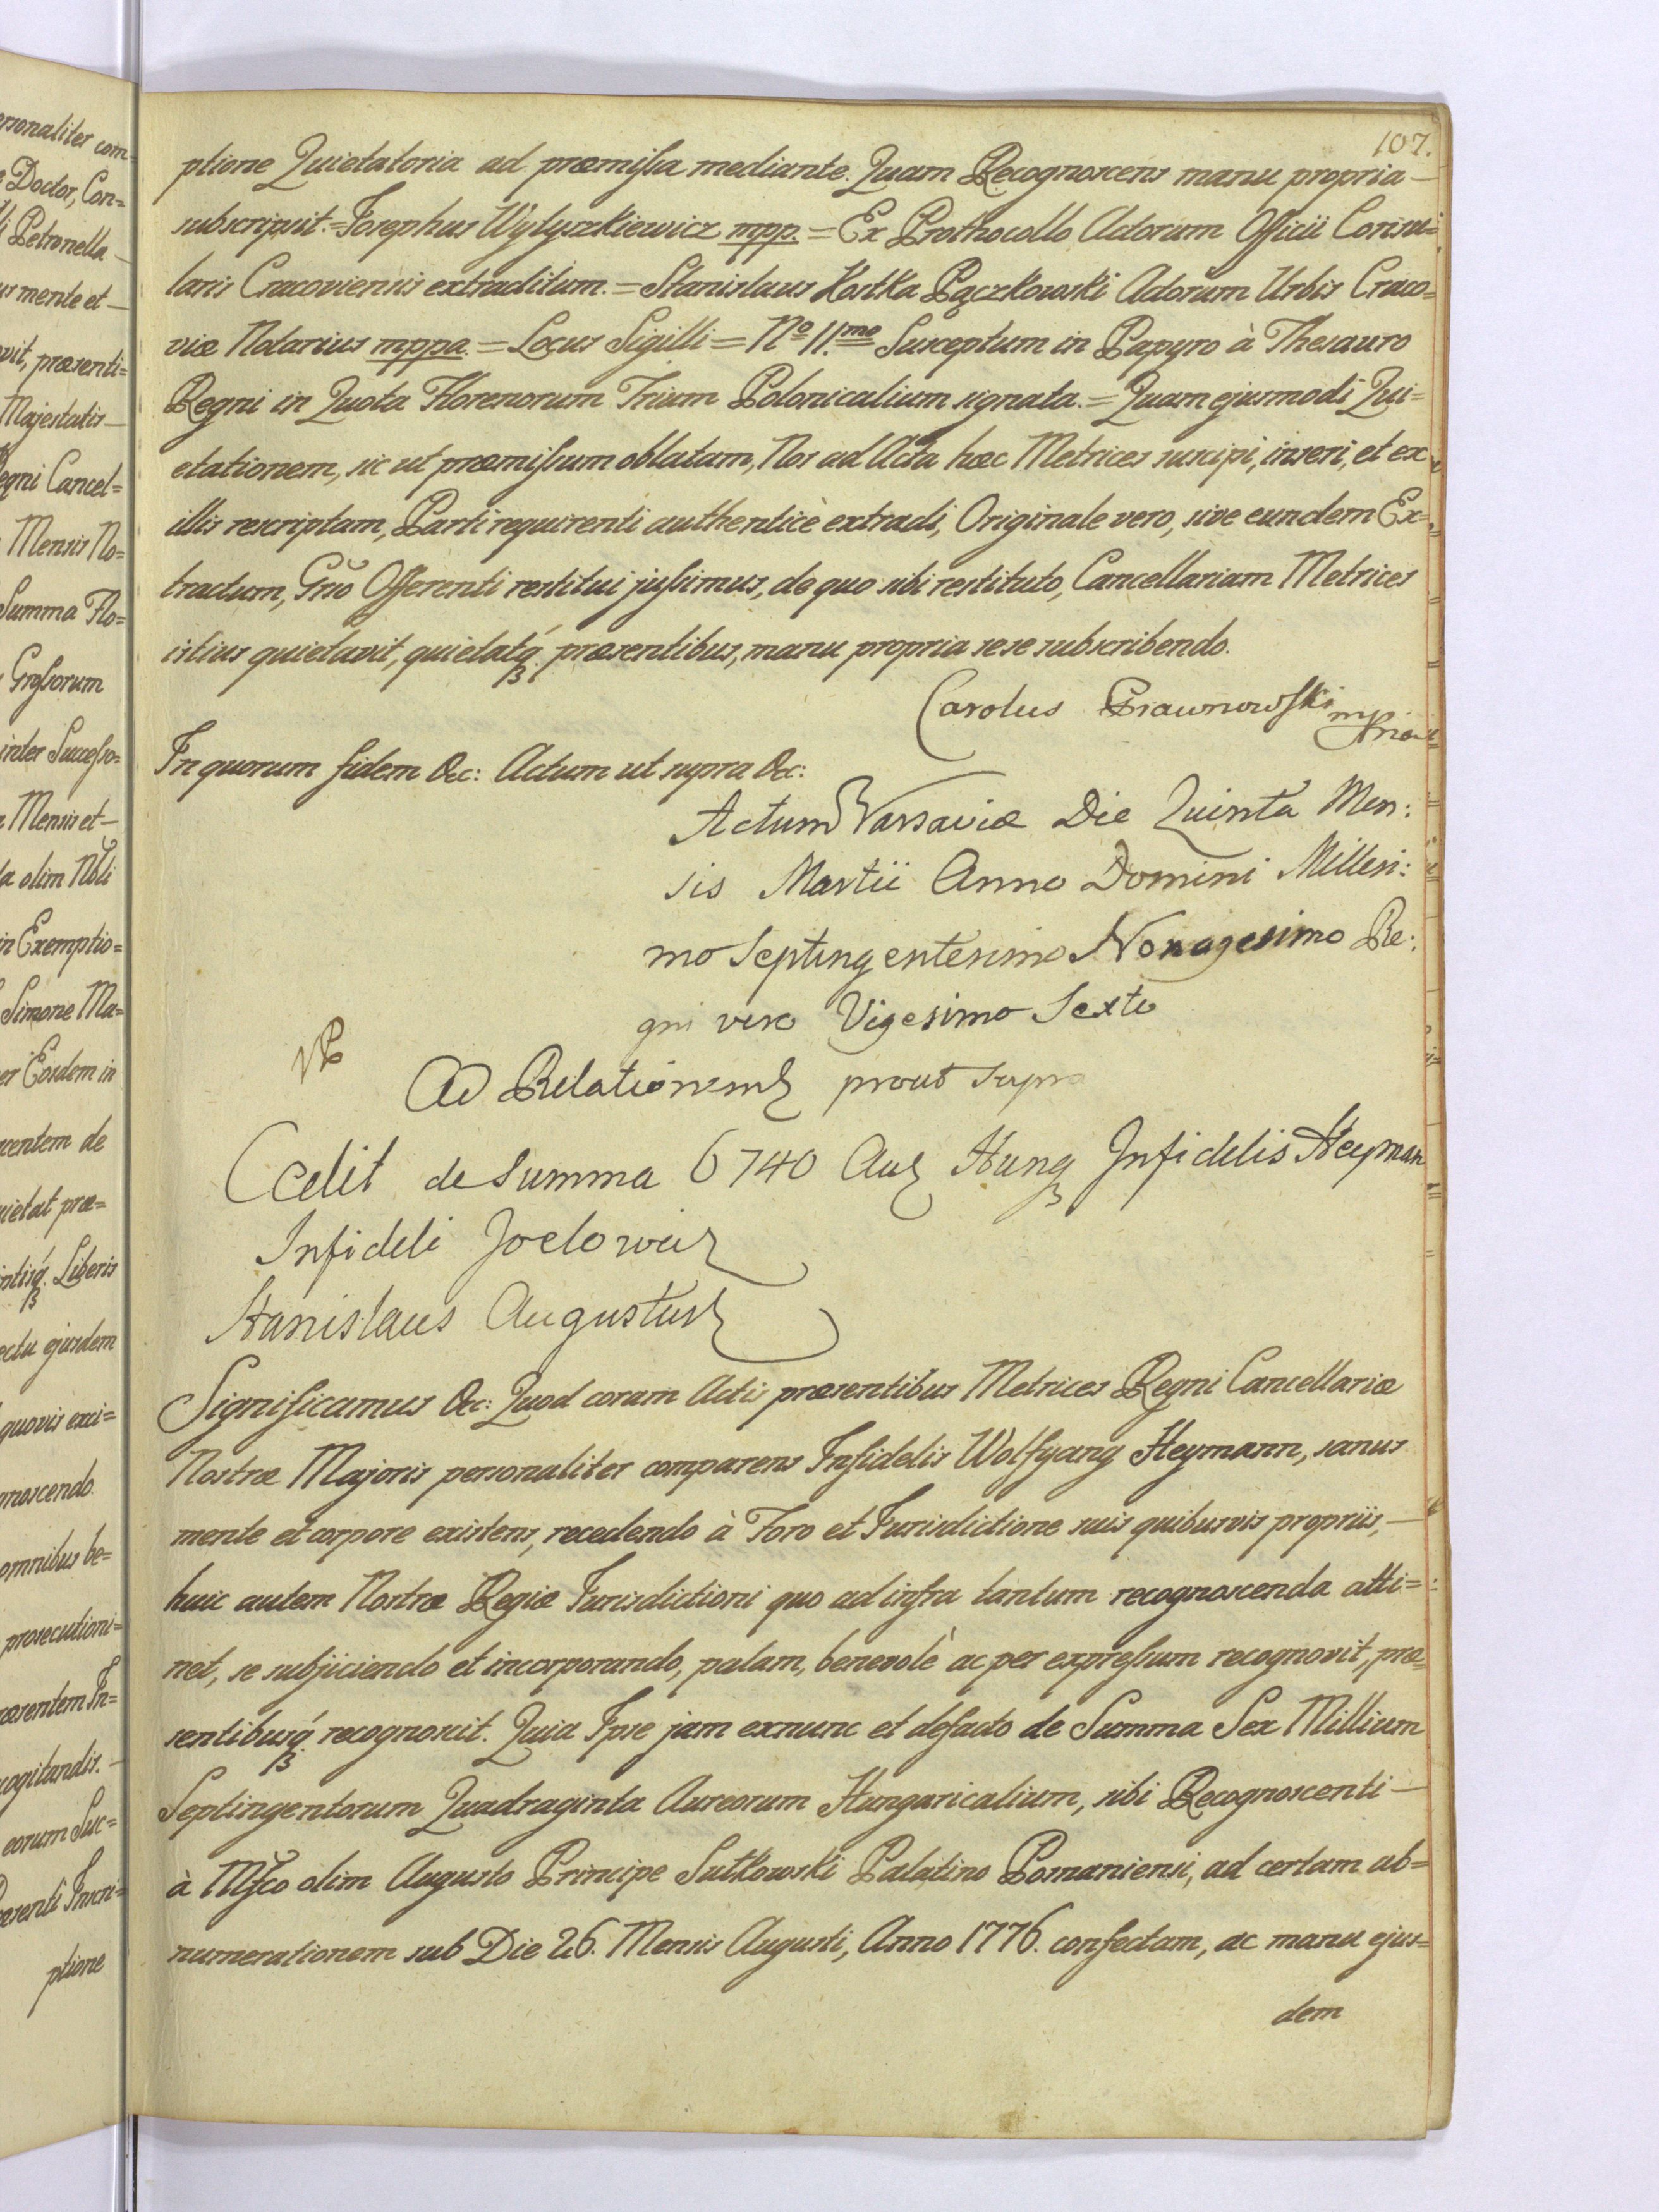 107.
ptione Quietatoria ad præmissa mediante. Quam Recognoscens manu propria —
subscripsit. = Josephus Wytyszkiewicz mpp. = Ex Prothocollo Actorum Officii Consu=
laris Cracoviensis extraditum. = Stanislaus Kostka Pączkowski Actorum Urbis Craco=
viæ Notarius mppa. = Locus Sigilli = Nº 11.mo Susceptum in Papyro à Thesauro
Regni in Quota Florenorum Trium Polonicalium signata. = Quam ejusmodi Qui=
etationem, sic ut præmissum oblatam, Nos ad Acta hæc Metrices suscipi, inseri, et ex
illis rescriptam, Parti requirenti authenticè extradi, Originale vero, sive eundem Ex=
tractum, Gnõ Offerenti restitui jussimus, de quo sibi restituto, Cancellariam Metrices
istius quietavit, quietatq́ præsentibus, manu propria sese subscribendo.
Carolus mpria
In quorum fidem &c: Actum ut supra &c:
Actum Varsaviæ Die Quinta Men:
sis Martii Anno Domini Millesi:
mo Septingentesimo Nonagesimo Re:
gni vero Vigesimo Sexto
Ad Relationem prout supra
Cedit de Summa 6740 Aur Hung Infidelis Heyman
Infideli Joelowicz
Stanislaus Augustus
Significamus &c: Quod coram Actis præsentibus Metrices Regni Cancellariæ
Nostræ Majoris personaliter comparens Infidelis Wolfgang Heymann, sanus
mente et corpore existens, recedendo à Foro et Jurisdictione suis quibusvis propriis, —
huic autem Nostræ Regiæ Jurisdictioni quo ad infra tantum recognoscenda atti=
net, se subjiciendo et incorporando, palam, benevolè ac per expressum recognovit, præ=
sentibusq́ recognoscit. Quia Ipse jam exnunc et defacto de Summa Sex Millium
Septingentorum Quadraginta Aureorum Hungaricalium, sibi Recognoscenti —
à Mgfco olim Augusto Principe Sułkowski Palatino Posnaniensi, ad certam ab=
numerationem sub Die 26. Mensis Augusti, Anno 1776. confectam, ac manu ejus=
dem